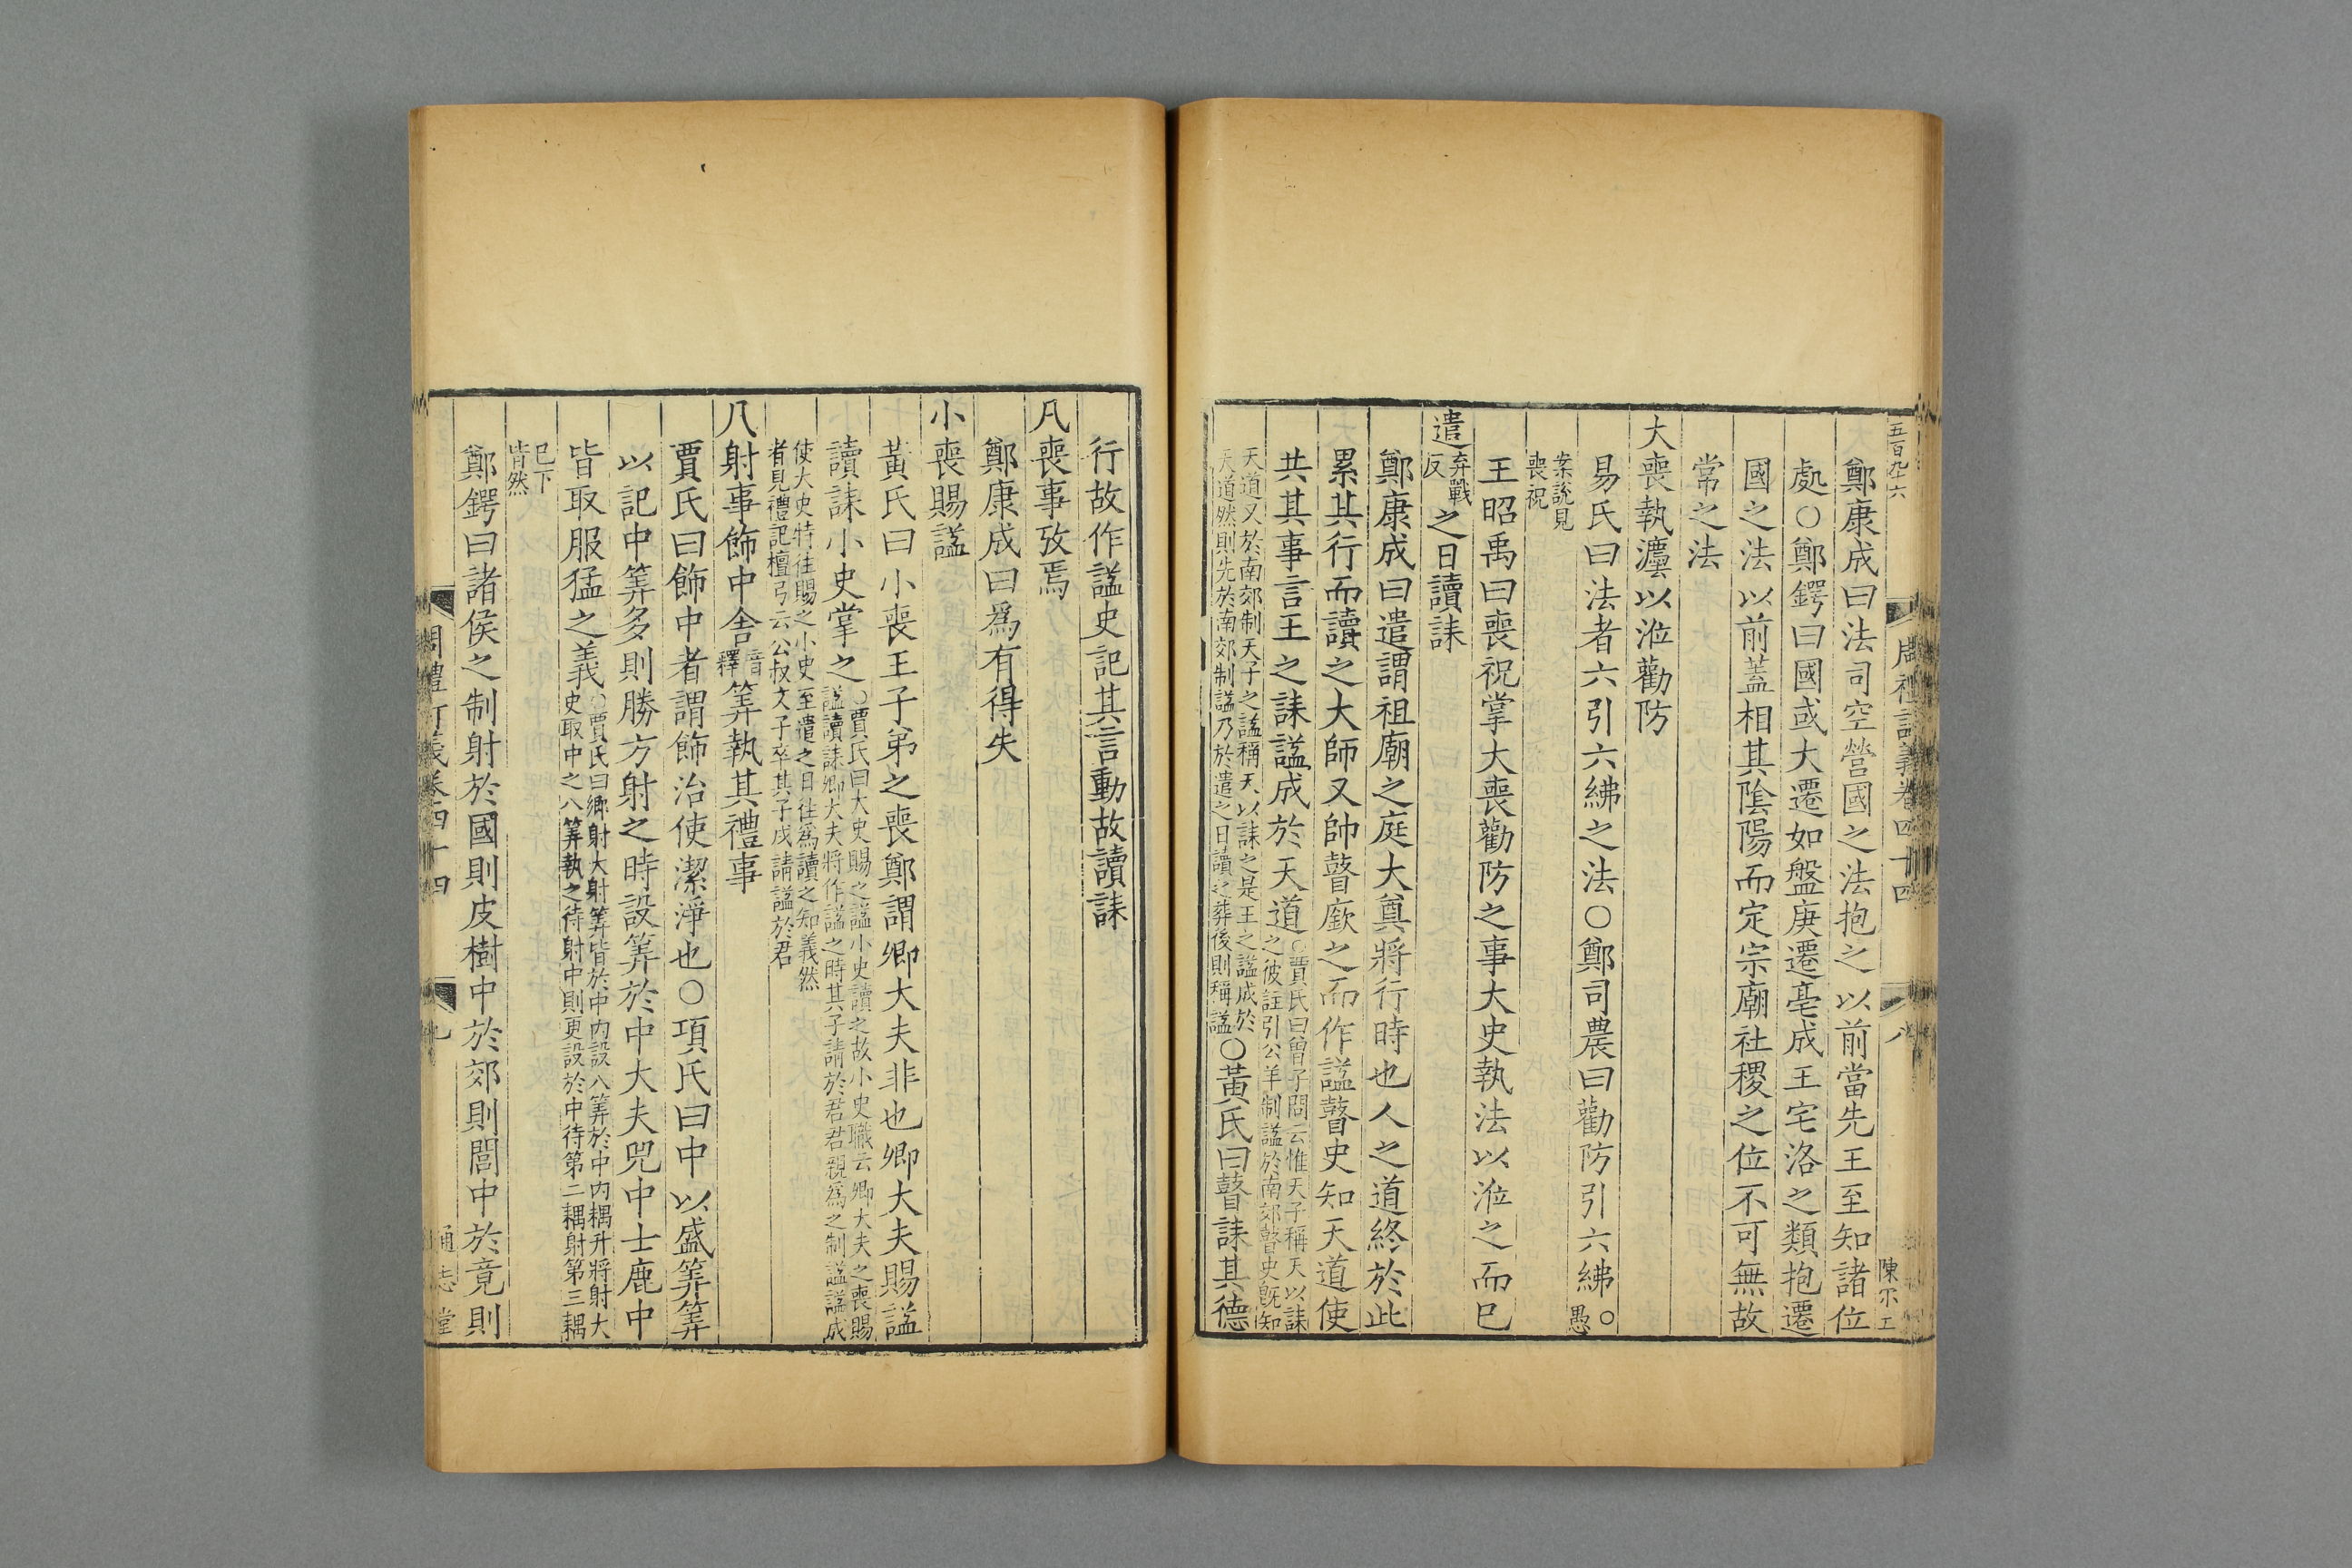 五百九十六
周禮訂義卷四十四
八
陳不工
鄭康成曰法司空營國之法抱之以前當先王至知諸位
處○鄭鍔曰國或大遷如盤庚遷亳成王宅洛之類抱遷
國之法以前蓋相其陰陽而定宗廟社稷之位不可無故
常之法
大喪執灋以涖勸防
易氏曰法者六引六紼之法○鄭司農曰勸防引六紼○愚
案說見
喪祝
王昭禹曰喪祝掌大喪勸防之事大史執法以涖之而已
遣弃戰反之日讀誄
鄭康成曰遣謂祖廟之庭大奠將行時也人之道終於此
累其行而讀之大師又帥瞽廞之而作諡瞽史知天道使
共其事言王之誄諡成於天道○賈氏曰曾子問云惟天子稱天以誄
之彼註引公羊制諡於南郊瞽史旣知
天道又於南郊制天子之諡稱天以誄之是王之諡成於
天道然則先於南郊制諡乃於遣之日讀之葬後則稱諡○黃氏曰瞽誄其德
行故作諡史記其言動故讀誄
凡喪事攷焉
鄭康成曰爲有得失
小喪賜諡
黃氏曰小喪王子弟之喪鄭謂卿大夫非也卿大夫賜諡
讀誄小史掌之○賈氏曰大史賜之諡小史讀之故小史職云卿大夫之喪賜
諡讀誄卿大夫將作諡之時其子請於君君親爲之制諡諡成
使大史特往賜之小史至遣之日往爲讀之知義然
者見禮記檀弓云公叔文子卒其子戍請諡於君
凡射事飾中舍音釋筭執其禮事
賈氏曰飾中者謂飾治使潔淨也○項氏曰中以盛筭筭
以記中筭多則勝方射之時設筭於中大夫兕中士鹿中
皆取服猛之義○賈氏曰鄉射大射筭皆於中内設八筭於中内耦升將射大
史取中之八筭執之待射中則更設於中待第二耦射第三耦
已下
皆然
鄭鍔曰諸侯之制射於國則皮樹中於郊則閭中於竟則
周禮訂義卷四十四
九
通志堂